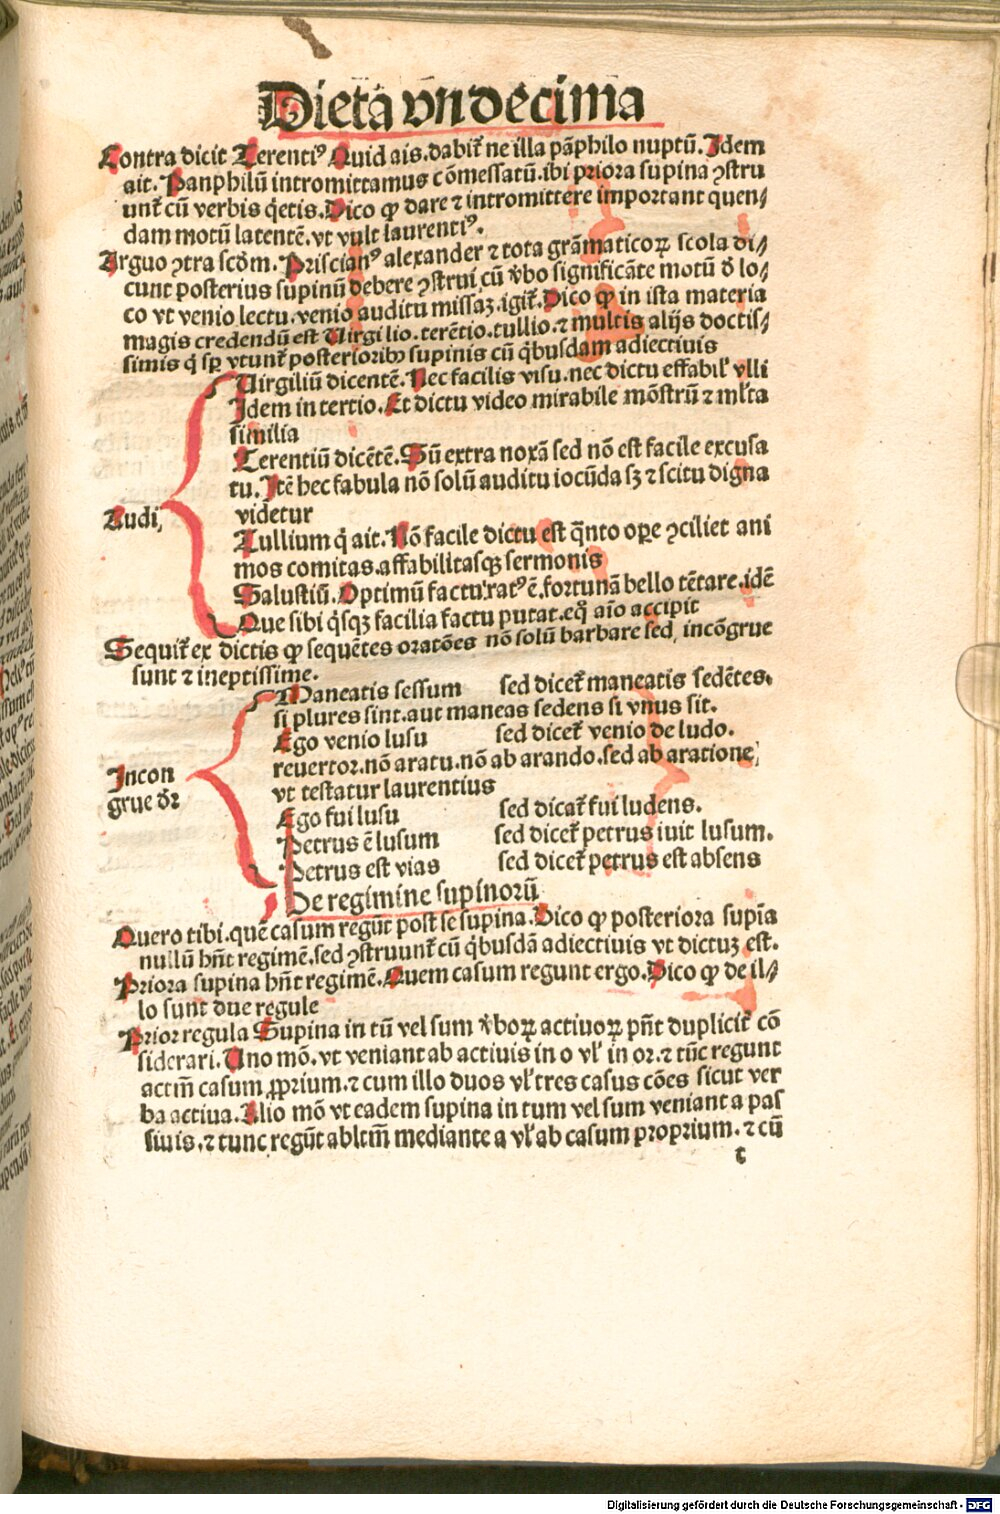 Dieta vndecima
Contra dicit Terentiꝰ Quid ais.dabit̃ ne illa pãphilo nuptũ. Idem
ait. Panphilũ intromittamus cõmessatũ.ibi priora supina ꝯstru
unt̃ cũ verbis q̃etis. Dico ꝙ dare ⁊ intromittere important quen⸗
dam motũ latentẽ.vt vult laurentiꝰ.
Arguo ꝯtra scd̃m. Priscianꝰ alexander ⁊ tota grãmaticoꝝ scola di⸗
cunt posterius supinũ debere ꝯstrui cũ v̾bo significãte motũ d̾ lo⸗
co vt venio lectu.venio auditu missaꝫ.igit̃. Dico ꝙ in ista materia
magis credendũ est Uirgilio.terẽtio.tullio.⁊ multis alijs doctis⸗
simis q̇ sꝑ vtunt̃ posterioribꝰ supinis cũ q̇busdam adiectiuis
Uirgiliũ dicentẽ. Nec facilis visu.nec dictu effabil̾ vlli
Idem in tertio. Et dictu video mirabile mõstrũ ⁊ ml̾ta
similia
Terentiũ dicẽtẽ. Sũ extra noxã sed nõ est facile excusa
tu. Itẽ hec fabula nõ solũ auditu iocũda sꝫ ⁊ scitu digna
Audi, videtur
Tullium q̇ ait. Nõ facile dictu est q̃nto oꝑe ꝯciliet ani
mos comitas.affabilitasqꝫ sermonis
Salustiũ. Optimũ factu:ratꝰ ẽ.fortunã bello tẽtare.idẽ
Que sibi q̇sqꝫ facilia factu putat.eq̃ aĩo accipit
Sequit̃ ex dictis ꝙ sequẽtes oratões nõ solũ barbare sed, incõgrue
sunt ⁊ ineptissime.
Maneatis sessum sed dicet̃ maneatis sedẽtes.
si plures sint.aut maneas sedens si vnus sit.
Ego venio lusu sed dicet̃ venio de ludo.
Incon reuertor.nõ aratu.nõ ab arando.sed ab aratione,
grue d̾r vt testatur laurentius
Ego fui lusu sed dicat̃ fui ludens.
Petrus ẽ lusum sed dicet̃ petrus iuit lusum.
Petrus est vias sed dicet̃ petrus est absens
De regimine supinorũ
Quero tibi.quẽ casum regũt post se supina. Dico ꝙ posteriora supĩa
nullũ hñt regimẽ.sed ꝯstruunt̃ cũ q̇busdã adiectiuis vt dictuꝫ est.
Priora supina hñt regimẽ. Quem casum regunt ergo. Dico ꝙ de il⸗
lo sunt due regule
Prior regula Supina in tũ vel sum v̾boꝝ actiuoꝝ pñt duplicit̃ cõ
siderari. Uno mõ.vt veniant ab actiuis in o vl̾ in or.⁊ tũc regunt
actm̃ casum ꝓprium.⁊ cum illo duos vl̾ tres casus cões sicut ver
ba actiua. Alio mõ vt eadem supina in tum vel sum veniant a pas
siuis.⁊ tunc regũt abltm̃ mediante a vl̾ ab casum proprium.⁊ cũ
t
Digitalisierung gefördert durch die Deutsche Forschungsgemeinschaft - DFG